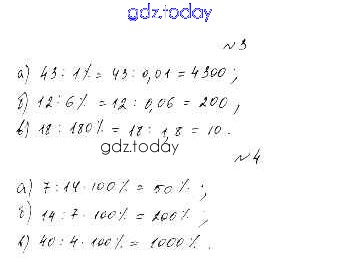 gdz.today
№3
а) 43 : 1% = 43 : 0,01 = 4300 ;
б) 12 : 6% = 12 : 0,06 = 200 ;
в) 18 : 180% = 18 : 1,8 = 10 .
gdz.today
№4
а) 7 : 14 · 100% = 50% ;
б) 14 : 7 · 100% = 200% ;
в) 40 : 4 · 100% = 1000% .